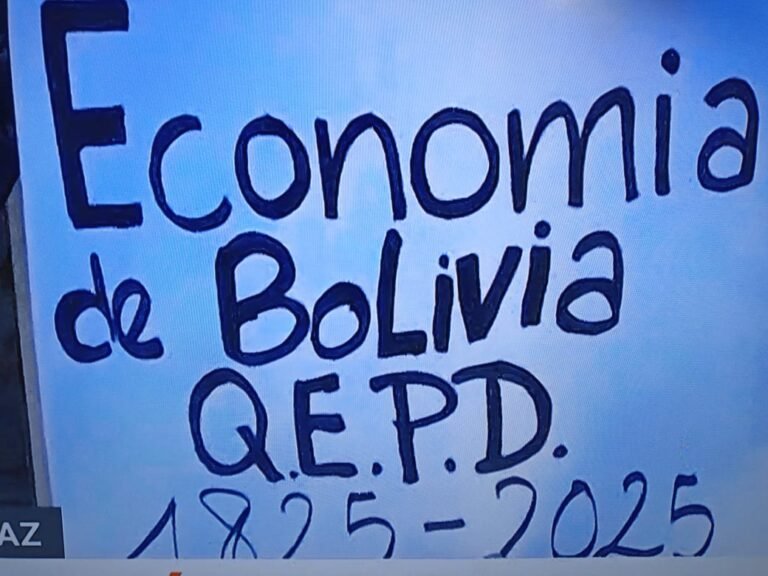 Economia
de BoLivia
Q.E.P.D.
1825-2025
AZ